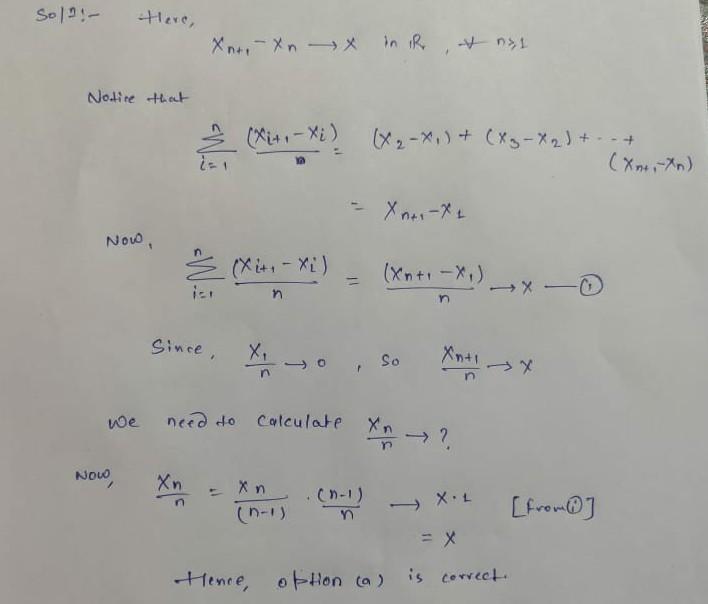 Solⁿ:- Here,
Xn+1 - Xn → X in ℝ, ∀ n≥1
Notice that
n∑i=1 (Xi+1 - Xi)/n = (X2-X1) + (X3-X2) + ... +
(Xn+1-Xn)
= Xn+1 - X1
Now,
n∑i=1 (Xi+1 - Xi)/n = (Xn+1 - X1)/n → X — ①
Since, X1/n → 0, so Xn+1/n → X
We need to calculate Xn/n → ?
Now, Xn/n = Xn/(n-1) · (n-1)/n → X·1 [from ①]
= X
Hence, option (a) is correct.